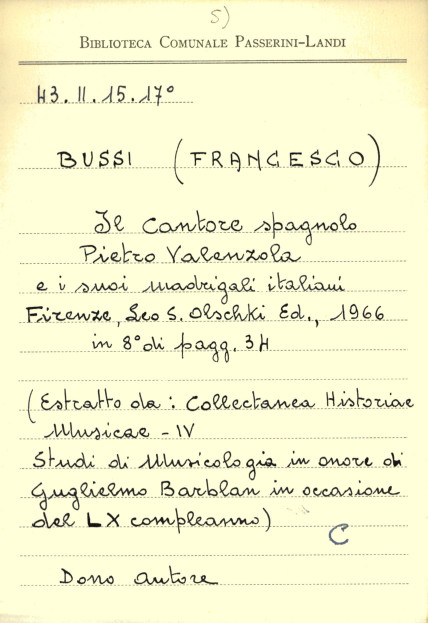 5)
BIBLIOTECA COMUNALE PASSERINI-LANDI
43.II.15.17°
BUSSI (FRANCESCO)
Il cantore spagnolo
Pietro Valenzola
e i suoi madrigali italiani
Firenze, Leo S. Olschki Ed., 1966
in 8° di pagg. 34
(Estratto da: Collectanea Historiae
Musicae - IV
Studi di Musicologia in onore di
Guglielmo Barblan in occasione
del LX compleanno)
C
Dono autore